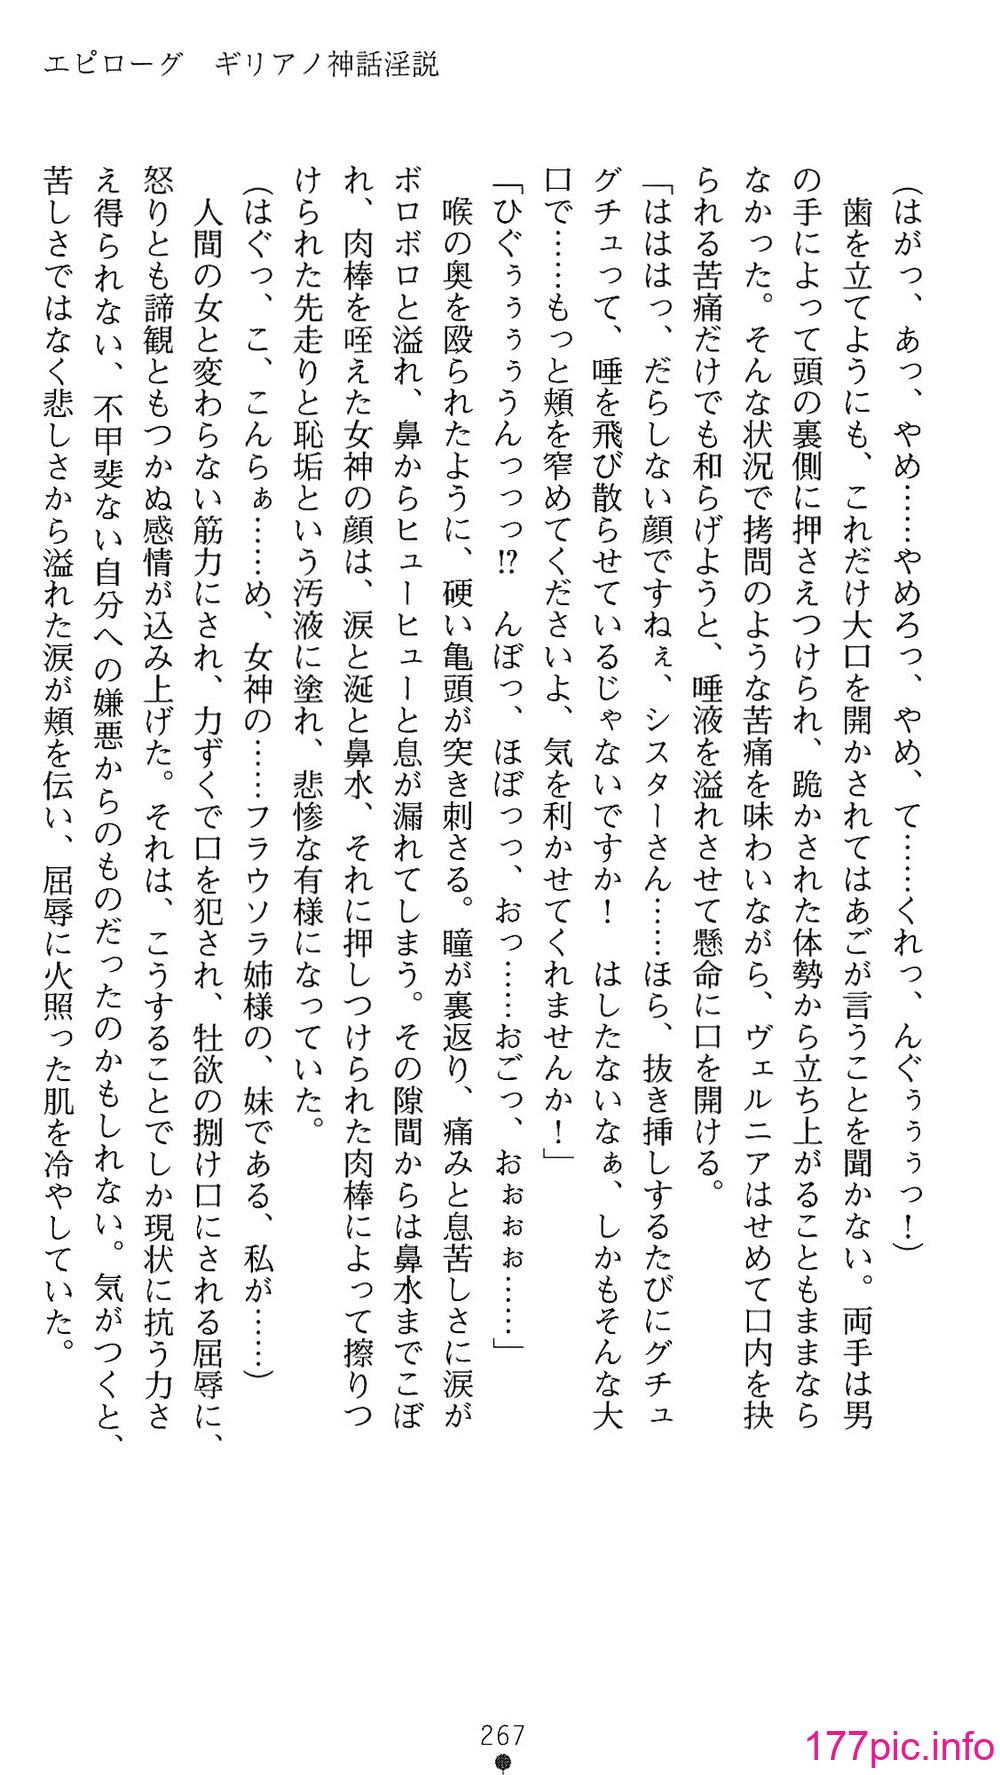 エピローグ　ギリアノ神話淫説
（はがっ、あっ、やめ……やめろっ、やめ、て……くれっ、んぐぅぅぅっ！）
　歯を立てようにも、これだけ大口を開かされてはあごが言うことを聞かない。両手は男
の手によって頭の裏側に押さえつけられ、跪かされた体勢から立ち上がることもままなら
なかった。そんな状況で拷問のような苦痛を味わいながら、ヴェルニアはせめて口内を抉
られる苦痛だけでも和らげようと、唾液を溢れさせて懸命に口を開ける。
「はははっ、だらしない顔ですねぇ、シスターさん……ほら、抜き挿しするたびにグチュ
グチュって、唾を飛び散らせているじゃないですか！　はしたないなぁ、しかもそんな大
口で……もっと頬を窄めてくださいよ、気を利かせてくれませんか！」
「ひぐぅぅぅぅうんっっっ⁉　んぼっ、ほぼっっ、おっ……おごっ、おぉぉぉ……」
　喉の奥を殴られたように、硬い亀頭が突き刺さる。瞳が裏返り、痛みと息苦しさに涙が
ボロボロと溢れ、鼻からヒューヒューと息が漏れてしまう。その隙間からは鼻水までこぼ
れ、肉棒を咥えた女神の顔は、涙と涎と鼻水、それに押しつけられた肉棒によって擦りつ
けられた先走りと恥垢という汚液に塗れ、悲惨な有様になっていた。
（はぐっ、こ、こんらぁ……め、女神の……フラウソラ姉様の、妹である、私が……）
　人間の女と変わらない筋力にされ、力ずくで口を犯され、牡欲の捌け口にされる屈辱に、
怒りとも諦観ともつかぬ感情が込み上げた。それは、こうすることでしか現状に抗う力さ
え得られない、不甲斐ない自分への嫌悪からのものだったのかもしれない。気がつくと、
苦しさではなく悲しさから溢れた涙が頬を伝い、屈辱に火照った肌を冷やしていた。
267
177pic.info